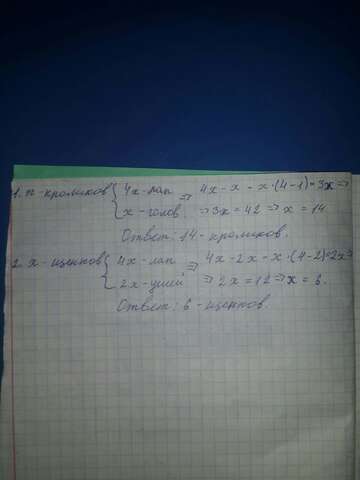 1. x - кроликов { 4x - лап => 4x - x = x·(4-1) = 3x =>
x - голов. => 3x = 42 => x = 14
Ответ: 14 - кроликов.
2. x - щенков { 4x - лап => 4x - 2x = x·(4-2) = 2x =>
2x - ушей => 2x = 12 => x = 6.
Ответ: 6 - щенков.